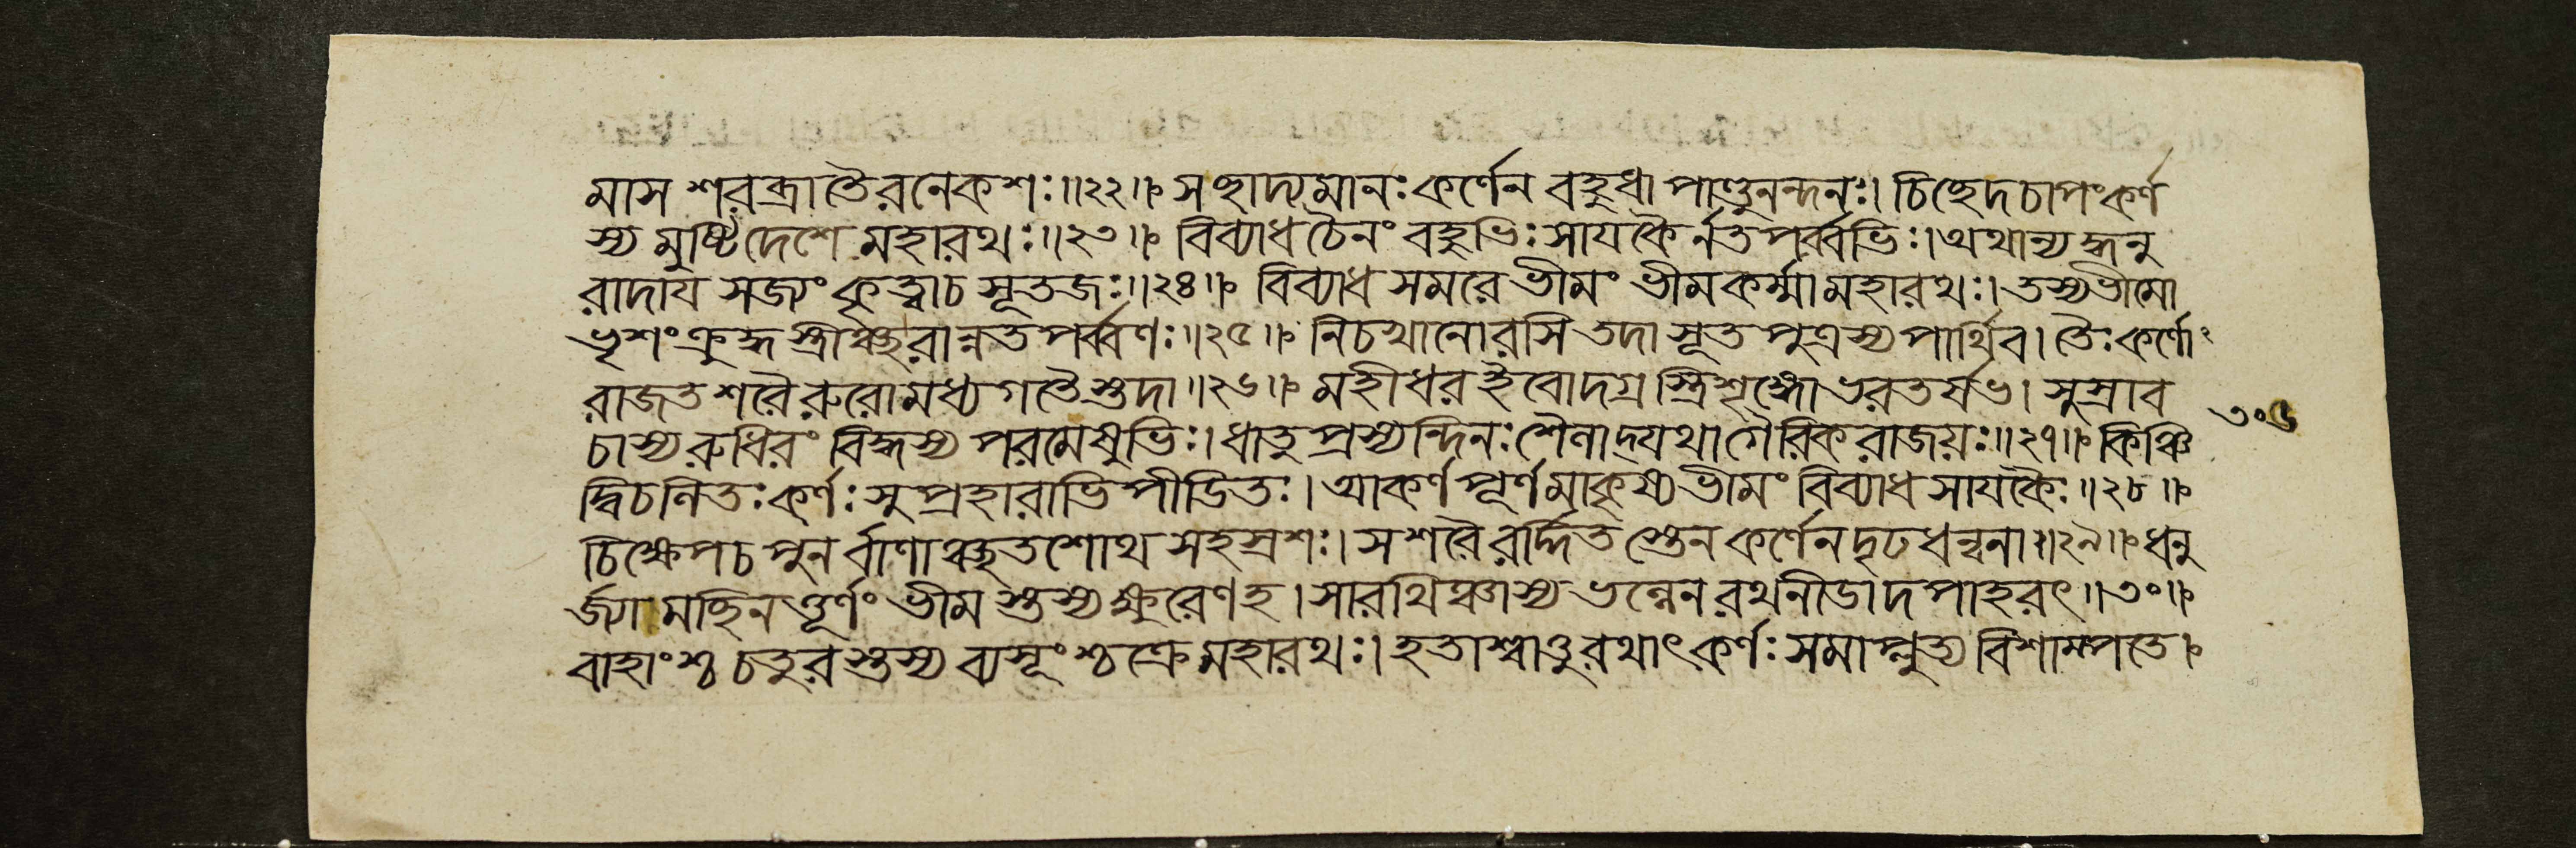 মাস শরব্রাতৈরনেকশঃ॥২২॥ সঞ্ছাদ্যমানঃ কর্ণেন বহুধা পাণ্ডুনন্দনঃ। চিচ্ছেদ চাপং কর্ণ
স্য মুষ্টিদেশে মহারথঃ॥২৩॥ বিব্যাধ চৈনং বহুভিঃ সায়কৈর্নতপর্ব্বভিঃ। অথান্যদ্ধনু
রাদায় সজ্যং কৃত্বা চ সূতজঃ॥২৪॥ বিব্যাধ সমরে ভীমং ভীমকর্ম্মা মহারথঃ। তস্য ভীমো
ভৃশং ক্রুদ্ধস্ত্রীঞ্ছরান্নতপর্ব্বণঃ॥২৫॥ নিচখানোরসি তদা সূতপুত্রস্য পার্থিব। তৈঃ কর্ণো
রাজত শরৈরুরোমধ্যগতৈস্তদা॥২৬॥ মহীধর ইবোদগ্রস্ত্রিশৃঙ্গো ভরতর্ষভ। সুস্রাব
চাস্য রুধিরং বিদ্ধস্য পরমেষুভিঃ। ধাতুপ্রস্যন্দিনঃ শৈলাদ্যথা গৈরিকরাজয়ঃ॥২৭॥ কিঞ্চি
দ্বিচলিতঃ কর্ণঃ সুপ্রহারাভিপীডিতঃ। আকর্ণপূর্ণমাকৃষ্য ভীমং বিব্যাধ সায়কৈঃ॥২৮॥
চিক্ষেপ চ পুনর্ব্বাণাঞ্ছতশোথ সহস্রশঃ। স শরৈরর্দ্দিতস্তেন কর্ণেন দৃঢধন্বনা॥২৯॥ ধনু
র্জ্যামচ্ছিনত্তূর্ণং ভীমস্তস্য ক্ষুরেণ হ। সারথিঞ্চাস্য ভল্লেন রথনীডাদপাহরৎ॥৩০॥
বাহাংশ্চ চতুরস্তস্য ব্যসূংশ্চক্রে মহারথঃ। হতাশ্বাত্তু রথাৎ কর্ণঃ সমাপ্লুত্য বিশাম্পতে
৩০৬